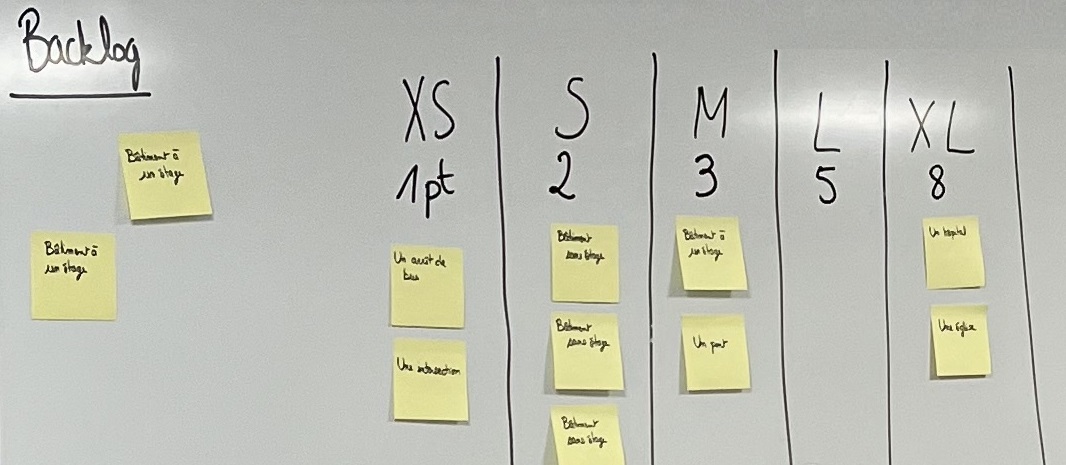 Backlog
Bâtiment à
un étage
Bâtiment à
un étage
XS
1pt
Un arrêt de
bus
Une intersection
S
2
Bâtiment
sans étage
Bâtiment
sans étage
Bâtiment
sans étage
M
3
Bâtiment à
un étage
Un pont
L
5
XL
8
Un hôpital
Une église